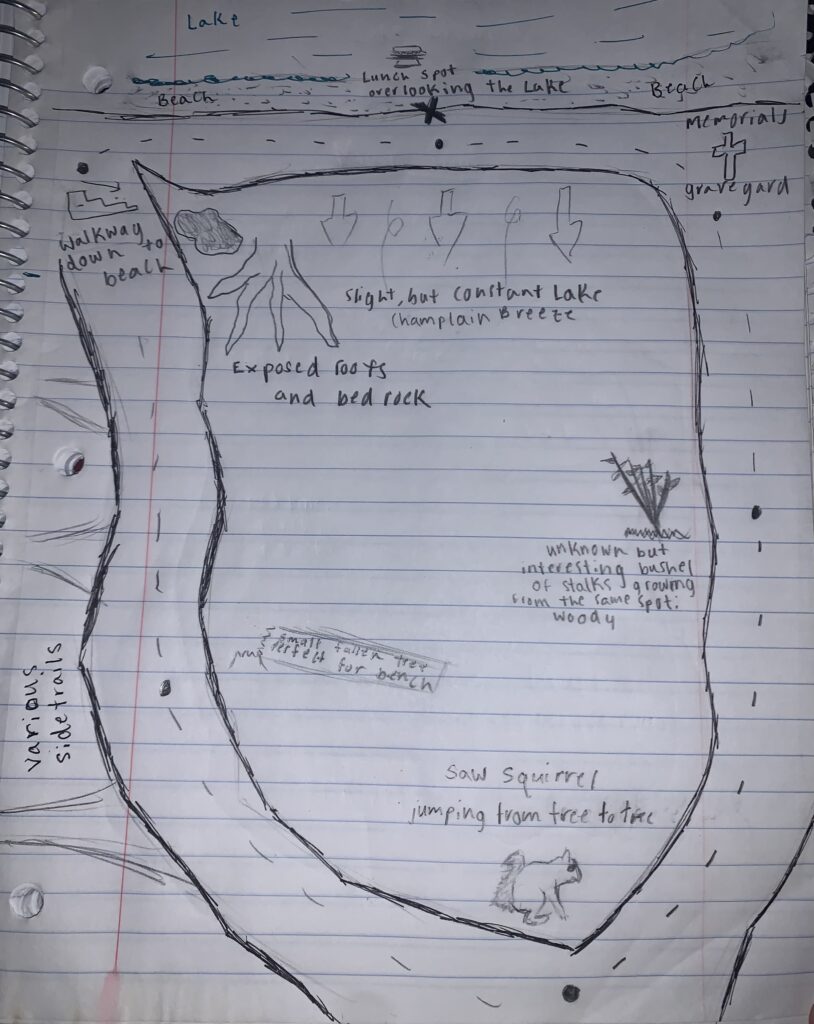 Lake
Lunch spot
overlooking the Lake
Beach
Beach
Memorials
graveyard
Walkway
down to
beach
slight, but constant Lake
Champlain Breeze
Exposed roots
and bedrock
unknown but
interesting bushel
of stalks growing
from the same spot:
woody
small fallen tree
perfect for bench
various
sidetrails
Saw squirrel
jumping from tree to tree